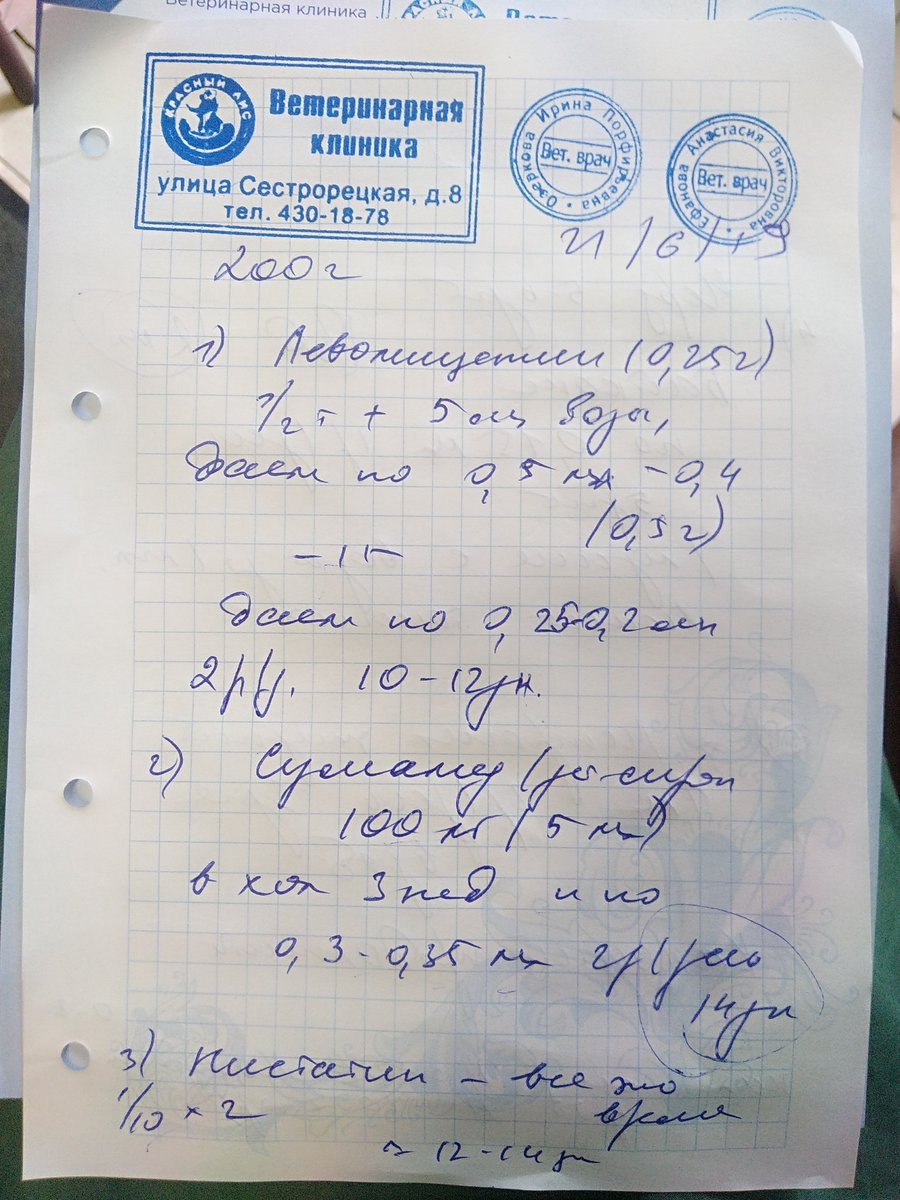 Ветеринарная клиника
КРАСНЫЙ ЛИС
Ветеринарная
клиника
улица Сестрорецкая, д.8
тел. 430-18-78
Озеркова Ирина Порфирьевна
Вет. врач
Ефанова Анастасия Викторовна
Вет. врач
21/6/19
200 г
1) Левомицетин (0,25г)
1/2 т + 5 мл воды,
даем по 0,5 мл - 0,4
(0,5 г)
- 11 -
даем по 0,25-0,2 мл
2 р/д. 10-12 дн.
2) Сумамед
100 мг (5 мл)
в хол 3 нед и по
0,3 - 0,35 мл
14 дн
3) Нистатин - все это
1/10 × 2 время
12-14 дн